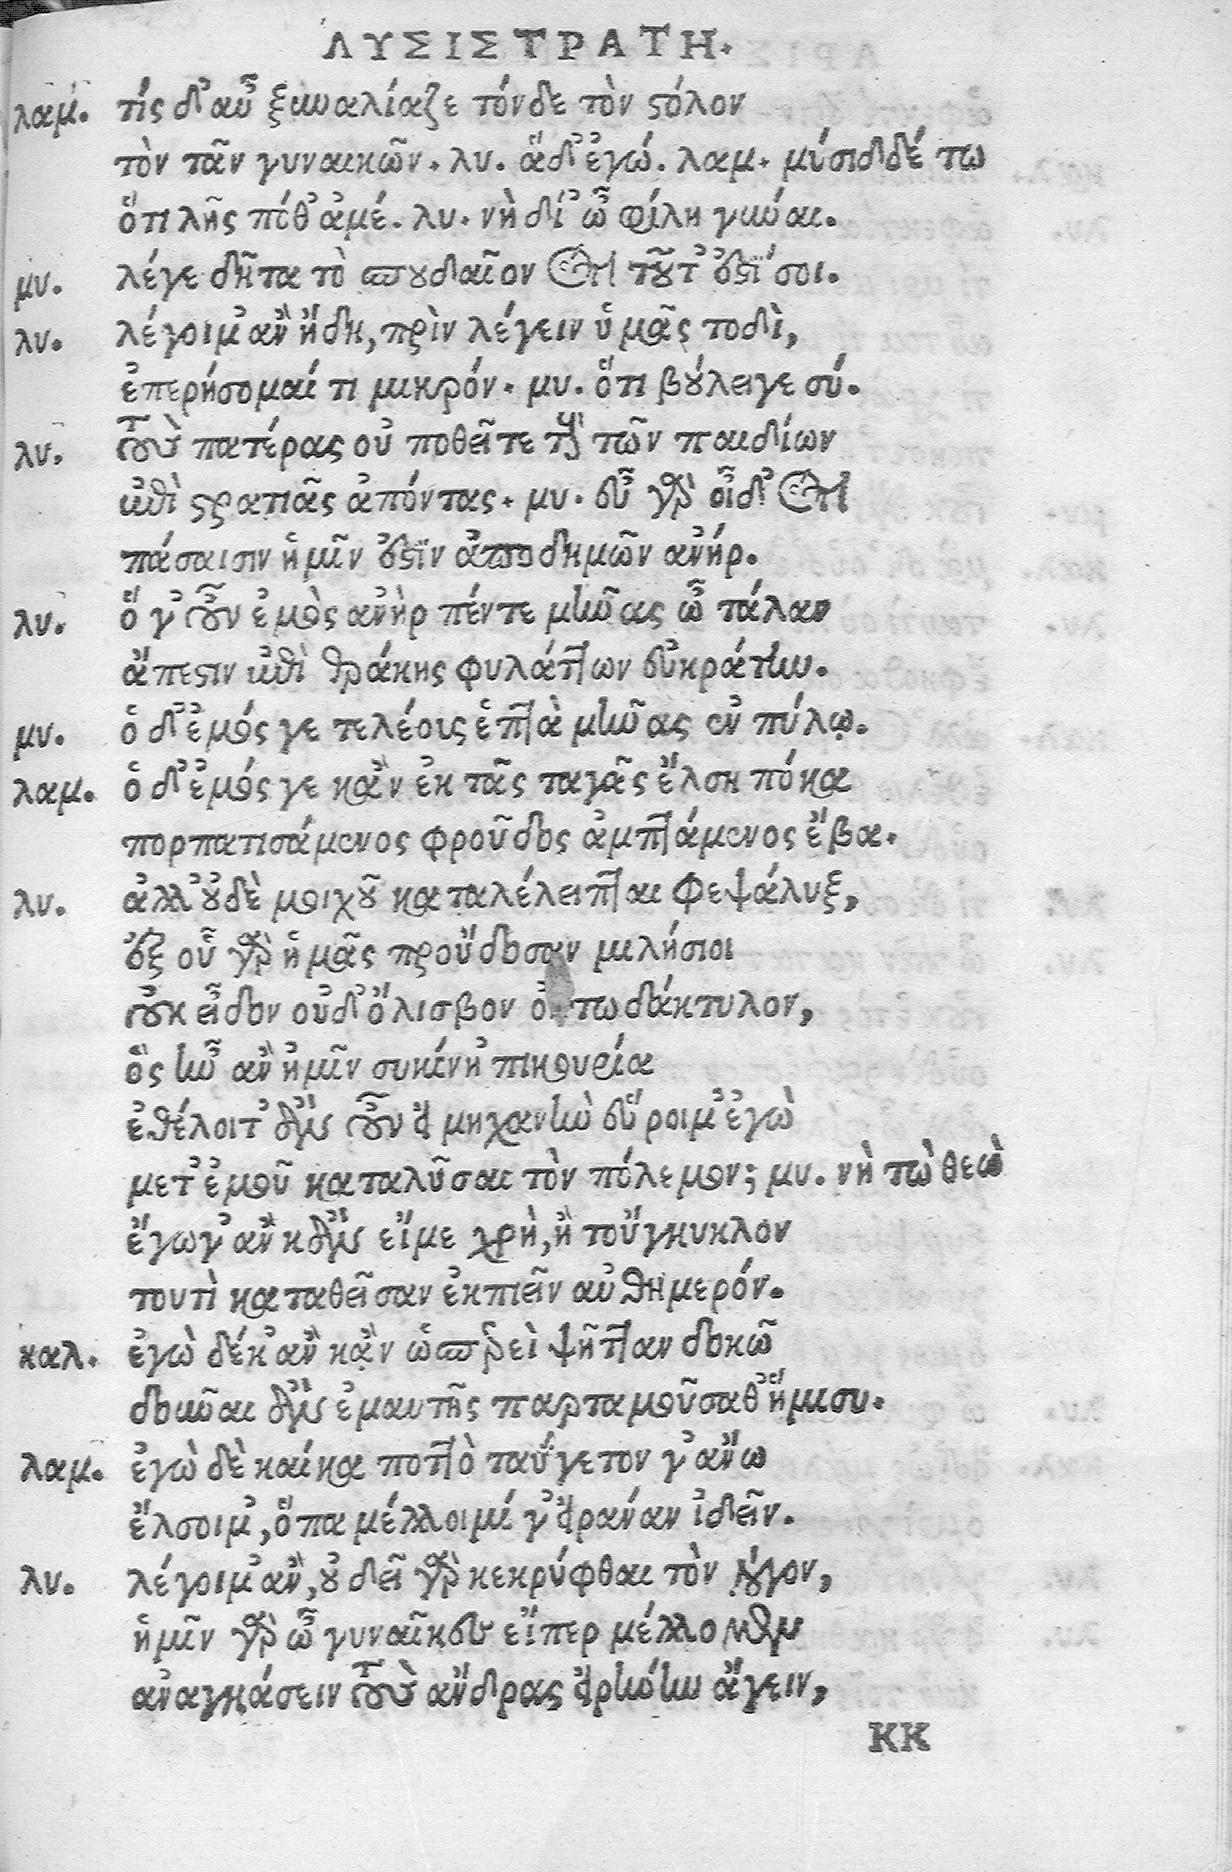 ΛΥΣΙΣΤΡΑΤΗ.
λαμ. τίς δ' αὖ ξυναλίαζε τόνδε τὸν στόλον
τὸν τᾶν γυναικῶν. λυ. ἅδ' ἐγώ. λαμ. μύσιδδέ τω
ὅτι λῆς πόθ' ἁμέ. λυ. νὴ δί' ὦ φίλη γύναι.
μυ. λέγε δῆτα τὸ σπουδαῖον ὅτι τοῦτ' ἐστί σοι.
λυ. λέγοιμ' ἂν ἤδη, πρὶν λέγειν ὑμᾶς τοδὶ,
ἐπερήσομαί τι μικρόν. μυ. ὅτι βούλει γε σύ.
λυ. τοὺς πατέρας οὐ ποθεῖτε τοὺς τῶν παιδίων
ἐπὶ στρατιᾶς ἀπόντας. μυ. εὖ γὰρ οἶδ' ὅτι
πάσαισιν ἡμῖν ἐστὶν ἀποδημῶν ἀνήρ.
λυ. ὅ γ' οὖν ἐμὸς ἀνὴρ πέντε μῆνας ὦ τάλαν
ἄπεστιν ἐπὶ θράκης φυλάττων εὐκράτην.
μυ. ὁ δ' ἐμός γε τελέους ἑπτὰ μῆνας ἐν πύλῳ.
λαμ. ὁ δ' ἐμός γε κἂν ἐκ τᾶς ταγᾶς ἔλση πόκα
πορπατισάμενος φροῦδος ἀμπτάμενος ἔβα.
λυ. ἀλλ' οὐδὲ μοιχοῦ καταλέλειπται φεψάλυξ,
ἐξ οὗ γὰρ ἡμᾶς προὔδοσαν μιλήσιοι
οὐκ εἶδον οὐδ' ὄλισβον ὀκτωδάκτυλον,
ὃς ἦν ἂν ἡμῖν συκίνη 'πικουρία
ἐθέλοιτ' ἂν οὖν εἰ μηχανὴν εὕροιμ' ἐγὼ
μετ' ἐμοῦ καταλῦσαι τὸν πόλεμον; μυ. νὴ τὼ θεὼ
ἔγωγ' ἂν κἂν εἴ με χρὴ, ἢ τοὔγκυκλον
τουτὶ καταθεῖσαν ἐκπιεῖν αὐθημερόν.
καλ. ἐγὼ δέ κ' ἂν κἂν ὡσπερεὶ ψῆτταν δοκῶ
δοῦναι ἂν ἐμαυτῆς παρταμοῦσα θ' ἥμισυ.
λαμ. ἐγὼ δὲ καί κα ποττὸ ταΰγετον γ' ἄνω
ἔλσοιμ', ὅπα μέλλοιμί γ' εἰράναν ἰδεῖν.
λυ. λέγοιμ' ἂν, οὐ δεῖ γὰρ κεκρύφθαι τὸν λόγον,
ἡμῖν γὰρ ὦ γυναῖκες εἴπερ μέλλομεν
ἀναγκάσειν τοὺς ἄνδρας εἰρήνην ἄγειν,
ΚΚ